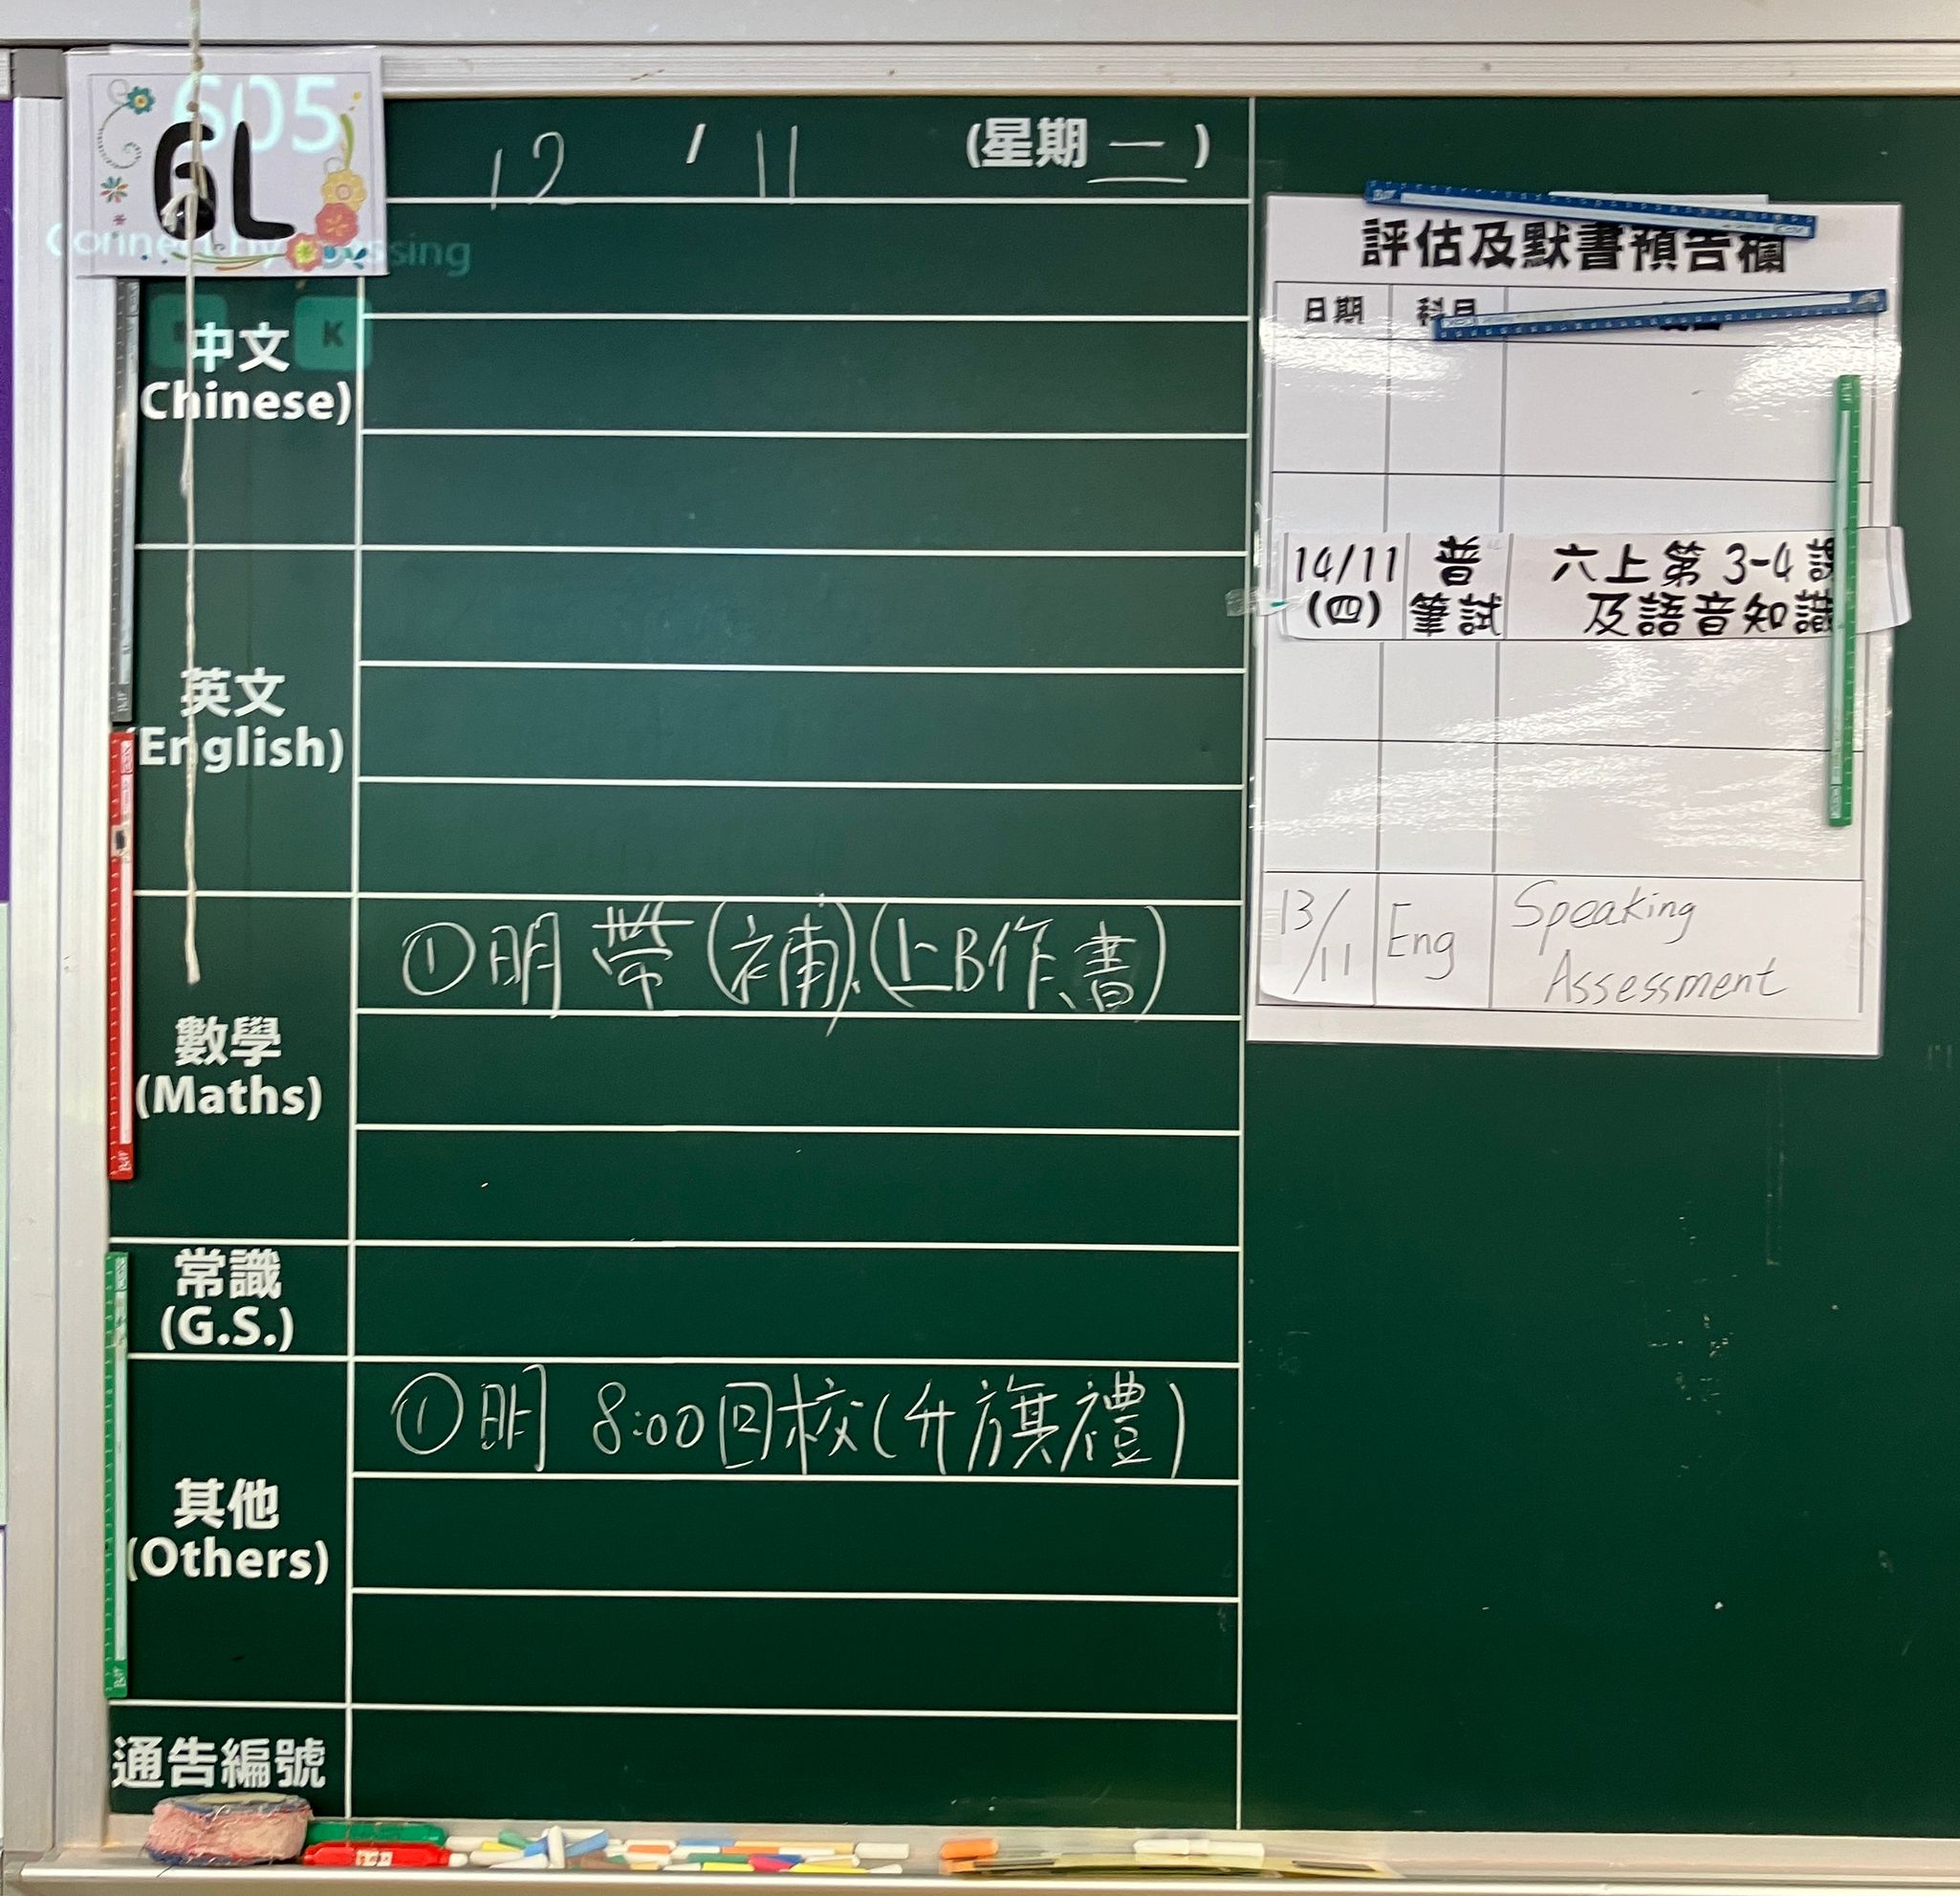 605
6L
Connect by pressing
K
12 / 11 (星期二)
中文
Chinese)
英文
(English)
數學
(Maths)
①明帶(補),(上B作書)
常識
(G.S.)
其他
(Others)
①明 8:00回校(升旗禮)
通告編號
評估及默書預告欄
日期 科目
14/11 普 六上第3-4課
(四) 筆試 及語音知識
13/11 Eng Speaking
Assessment